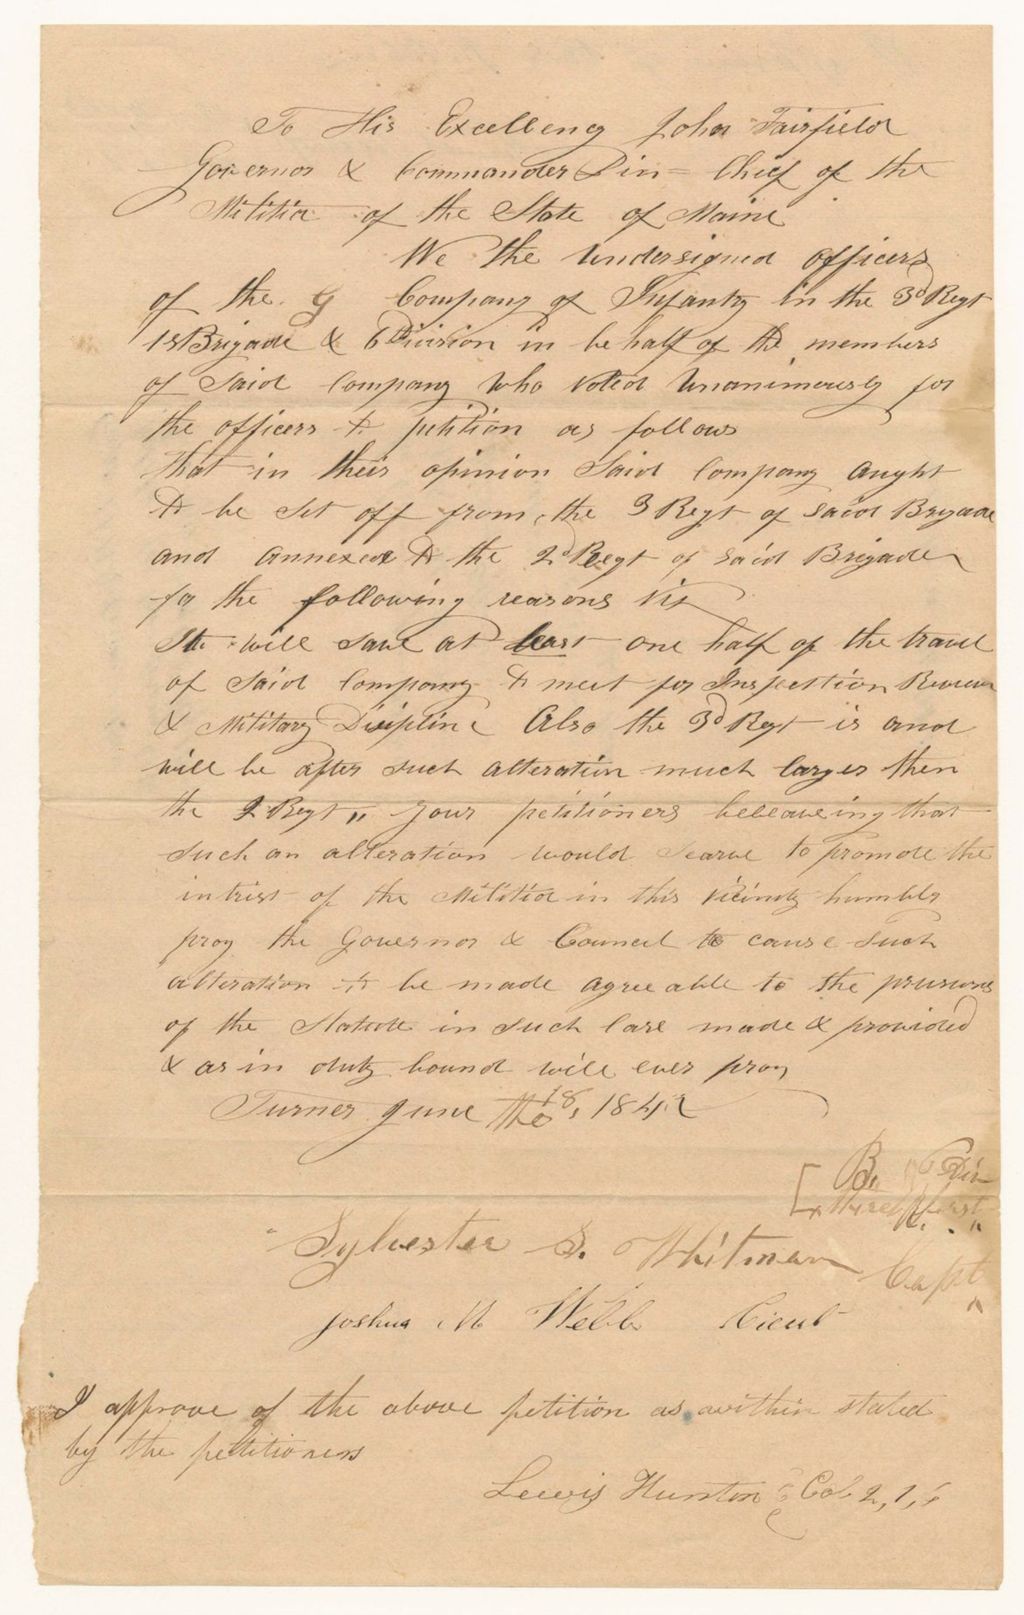 To His Excellency John Fairfield
Governor & Commander in - Chief of the
Militia of the State of Maine
We the undersigned officers
of the G Company of Infantry in the 3d Regt
1st Brigade & 6 Division in behalf of the members
of Said Company who voted unanimously for
the officers to petition as follows
that in their opinion Said Company aught
to be set off from the 3 Regt of Said Brigade
and annexed to the 2d Regt of Said Brigade
for the following reasons viz
It will save at least one half of the travel
of Said Company to meet for Inspection Review
& Military Disipline Also the 3d Regt is and
will be after such alteration much larger then
the 2 Regt " your petitioners beleaveing that
such an alteration would searve to promote the
intrist of the Militia in this vicinity humbly
pray the Governor & Council to cause such
alteration to be made agreeable to the
of the Statute in such case made & provided
& as in duty bound will ever pray
Turner June the 18, 1842
B.
Sylvester S. Whitman Capt
Joshua M Webb Lieut
I approve of the above petition as within stated
by the petitioners
Lewis Hunton Col 2, 1, 6